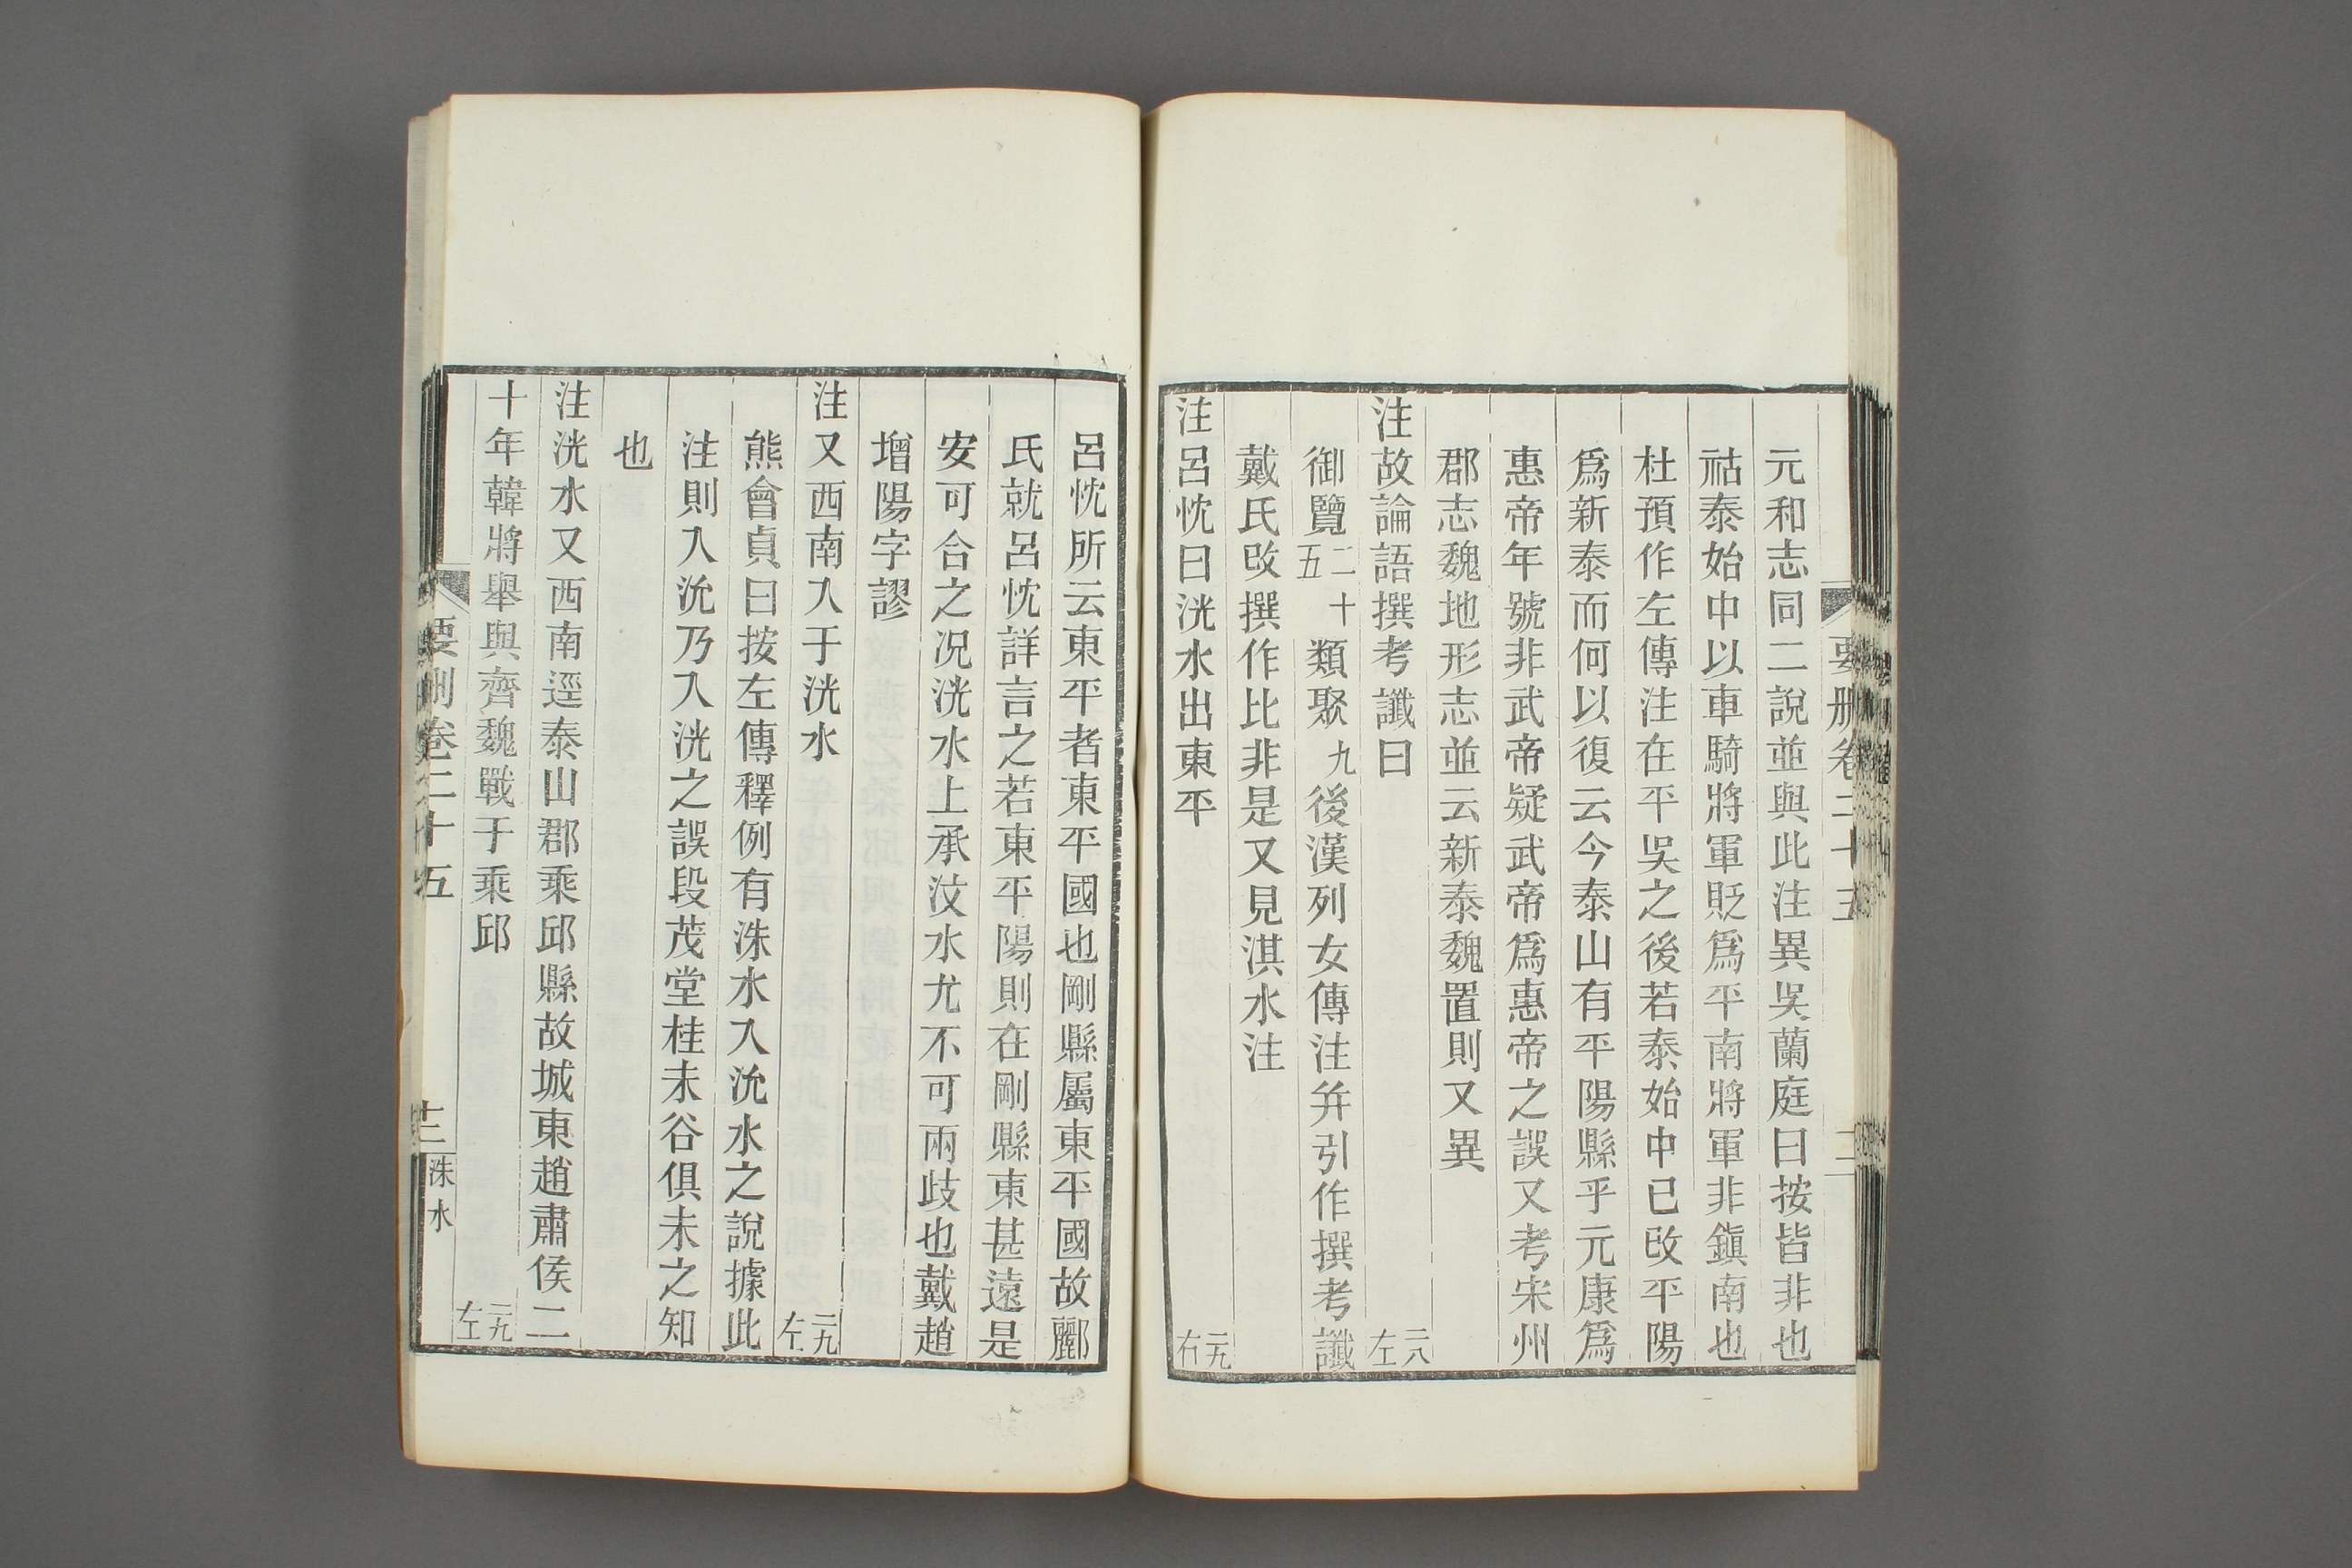 要刪卷二十五
元和志同二說並與此注異吳蘭庭曰按皆非也
祜泰始中以車騎將軍貶爲平南將軍非鎭南也
杜預作左傳注在平吳之後若泰始中已改平陽
爲新泰而何以復云今泰山有平陽縣乎元康爲
惠帝年號非武帝疑武帝爲惠帝之誤又考宋州
郡志魏地形志並云新泰魏置則又異
注故論語撰考讖曰 二八左
御覽二十五類聚九後漢列女傳注并引作撰考讖
戴氏改撰作比非是又見淇水注
注呂忱曰洸水出東平 二九右
呂忱所云東平者東平國也剛縣屬東平國故酈
氏就呂忱詳言之若東平陽則在剛縣東甚遠是
安可合之况洸水上承汶水尤不可兩歧也戴趙
增陽字謬
注又西南入于洸水 二九左
熊會貞曰按左傳釋例有洙水入沇水之說據此
注則入沇乃入洸之誤段茂堂桂未谷俱未之知
也
注洸水又西南逕泰山郡乘邱縣故城東趙肅侯二
十年韓將舉與齊魏戰于乘邱 二九左
要刪卷二十五
三
洙水